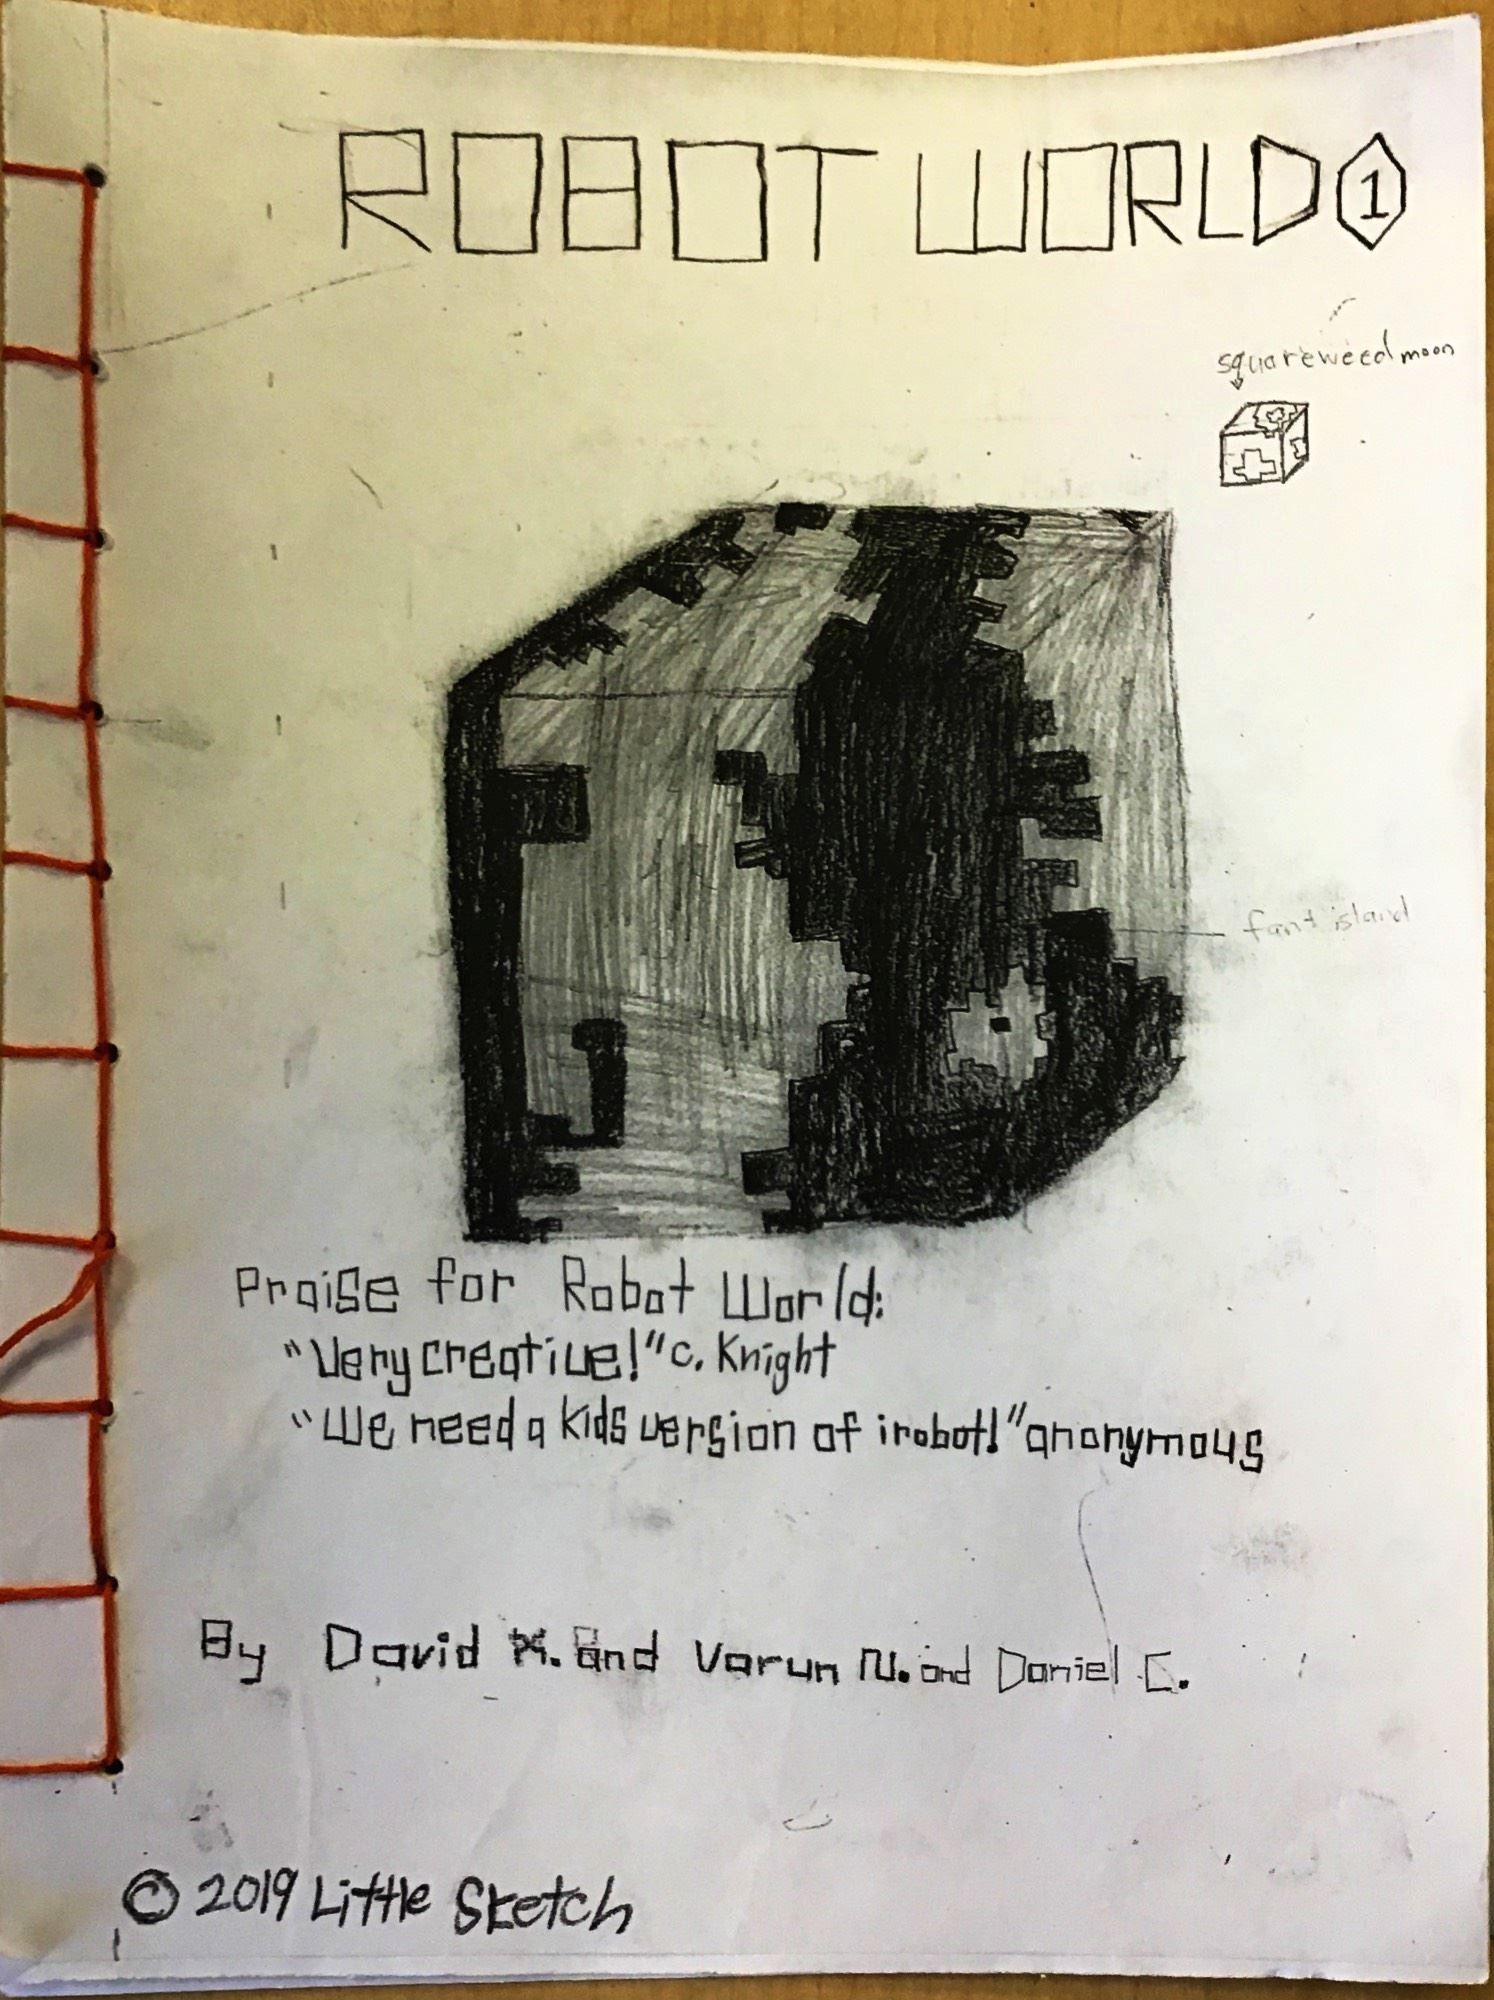 ROBOT WORLD 1
squareweed moon
fant island
Praise for Robot World:
"Very creative!" c. Knight
"We need a kids version of irobot!" anonymous
By David M. and Varun N. and Daniel C.
© 2019 Little Sketch